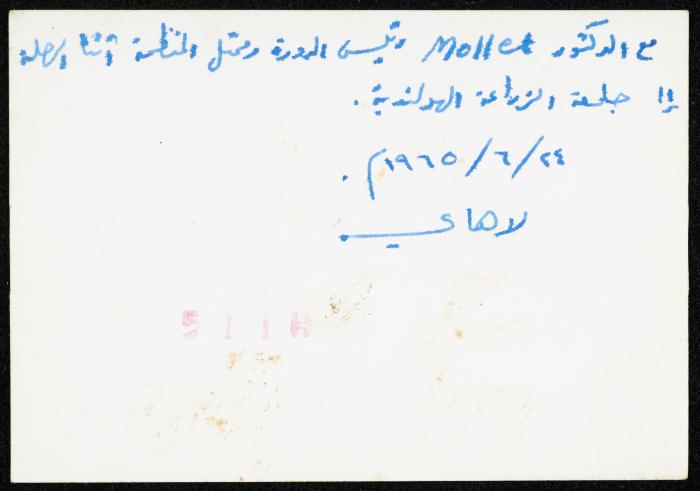 مع الدكتور Mollet رئيس الدورة وممثل المنظمة أثنا الرحلة
إلا جامعة الزراعة الهولندية.
٢٤/٦/١٩٦٥م.
لاهاي
511H